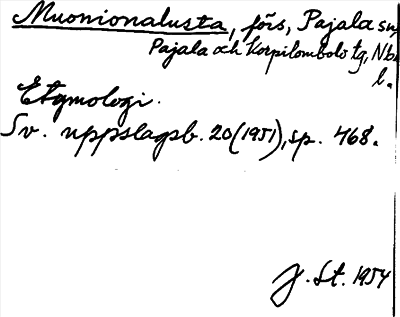 Muonionalusta, förs, Pajala sn,
Pajala och Korpilombolo tg, Nb.
l.
Etymologi.
Sv. uppslagsb. 20 (1951), sp. 468.
J. St. 1954